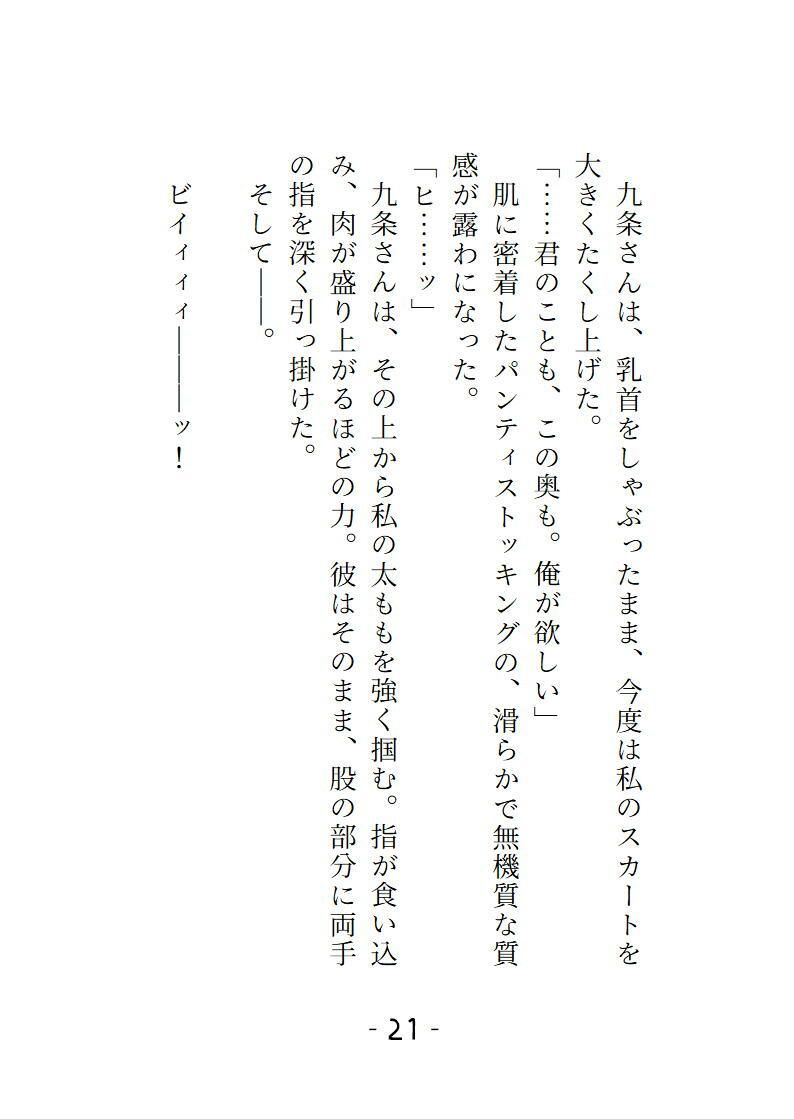 九条さんは、乳首をしゃぶったまま、今度は私のスカートを
大きくたくし上げた。
「……君のことも、この奥も。俺が欲しい」
肌に密着したパンティストッキングの、滑らかで無機質な質
感が露わになった。
「ヒ……ッ」
九条さんは、その上から私の太ももを強く掴む。指が食い込
み、肉が盛り上がるほどの力。彼はそのまま、股の部分に両手
の指を深く引っ掛けた。
そして――。
ビイィィィ―――ッ！
- 21 -